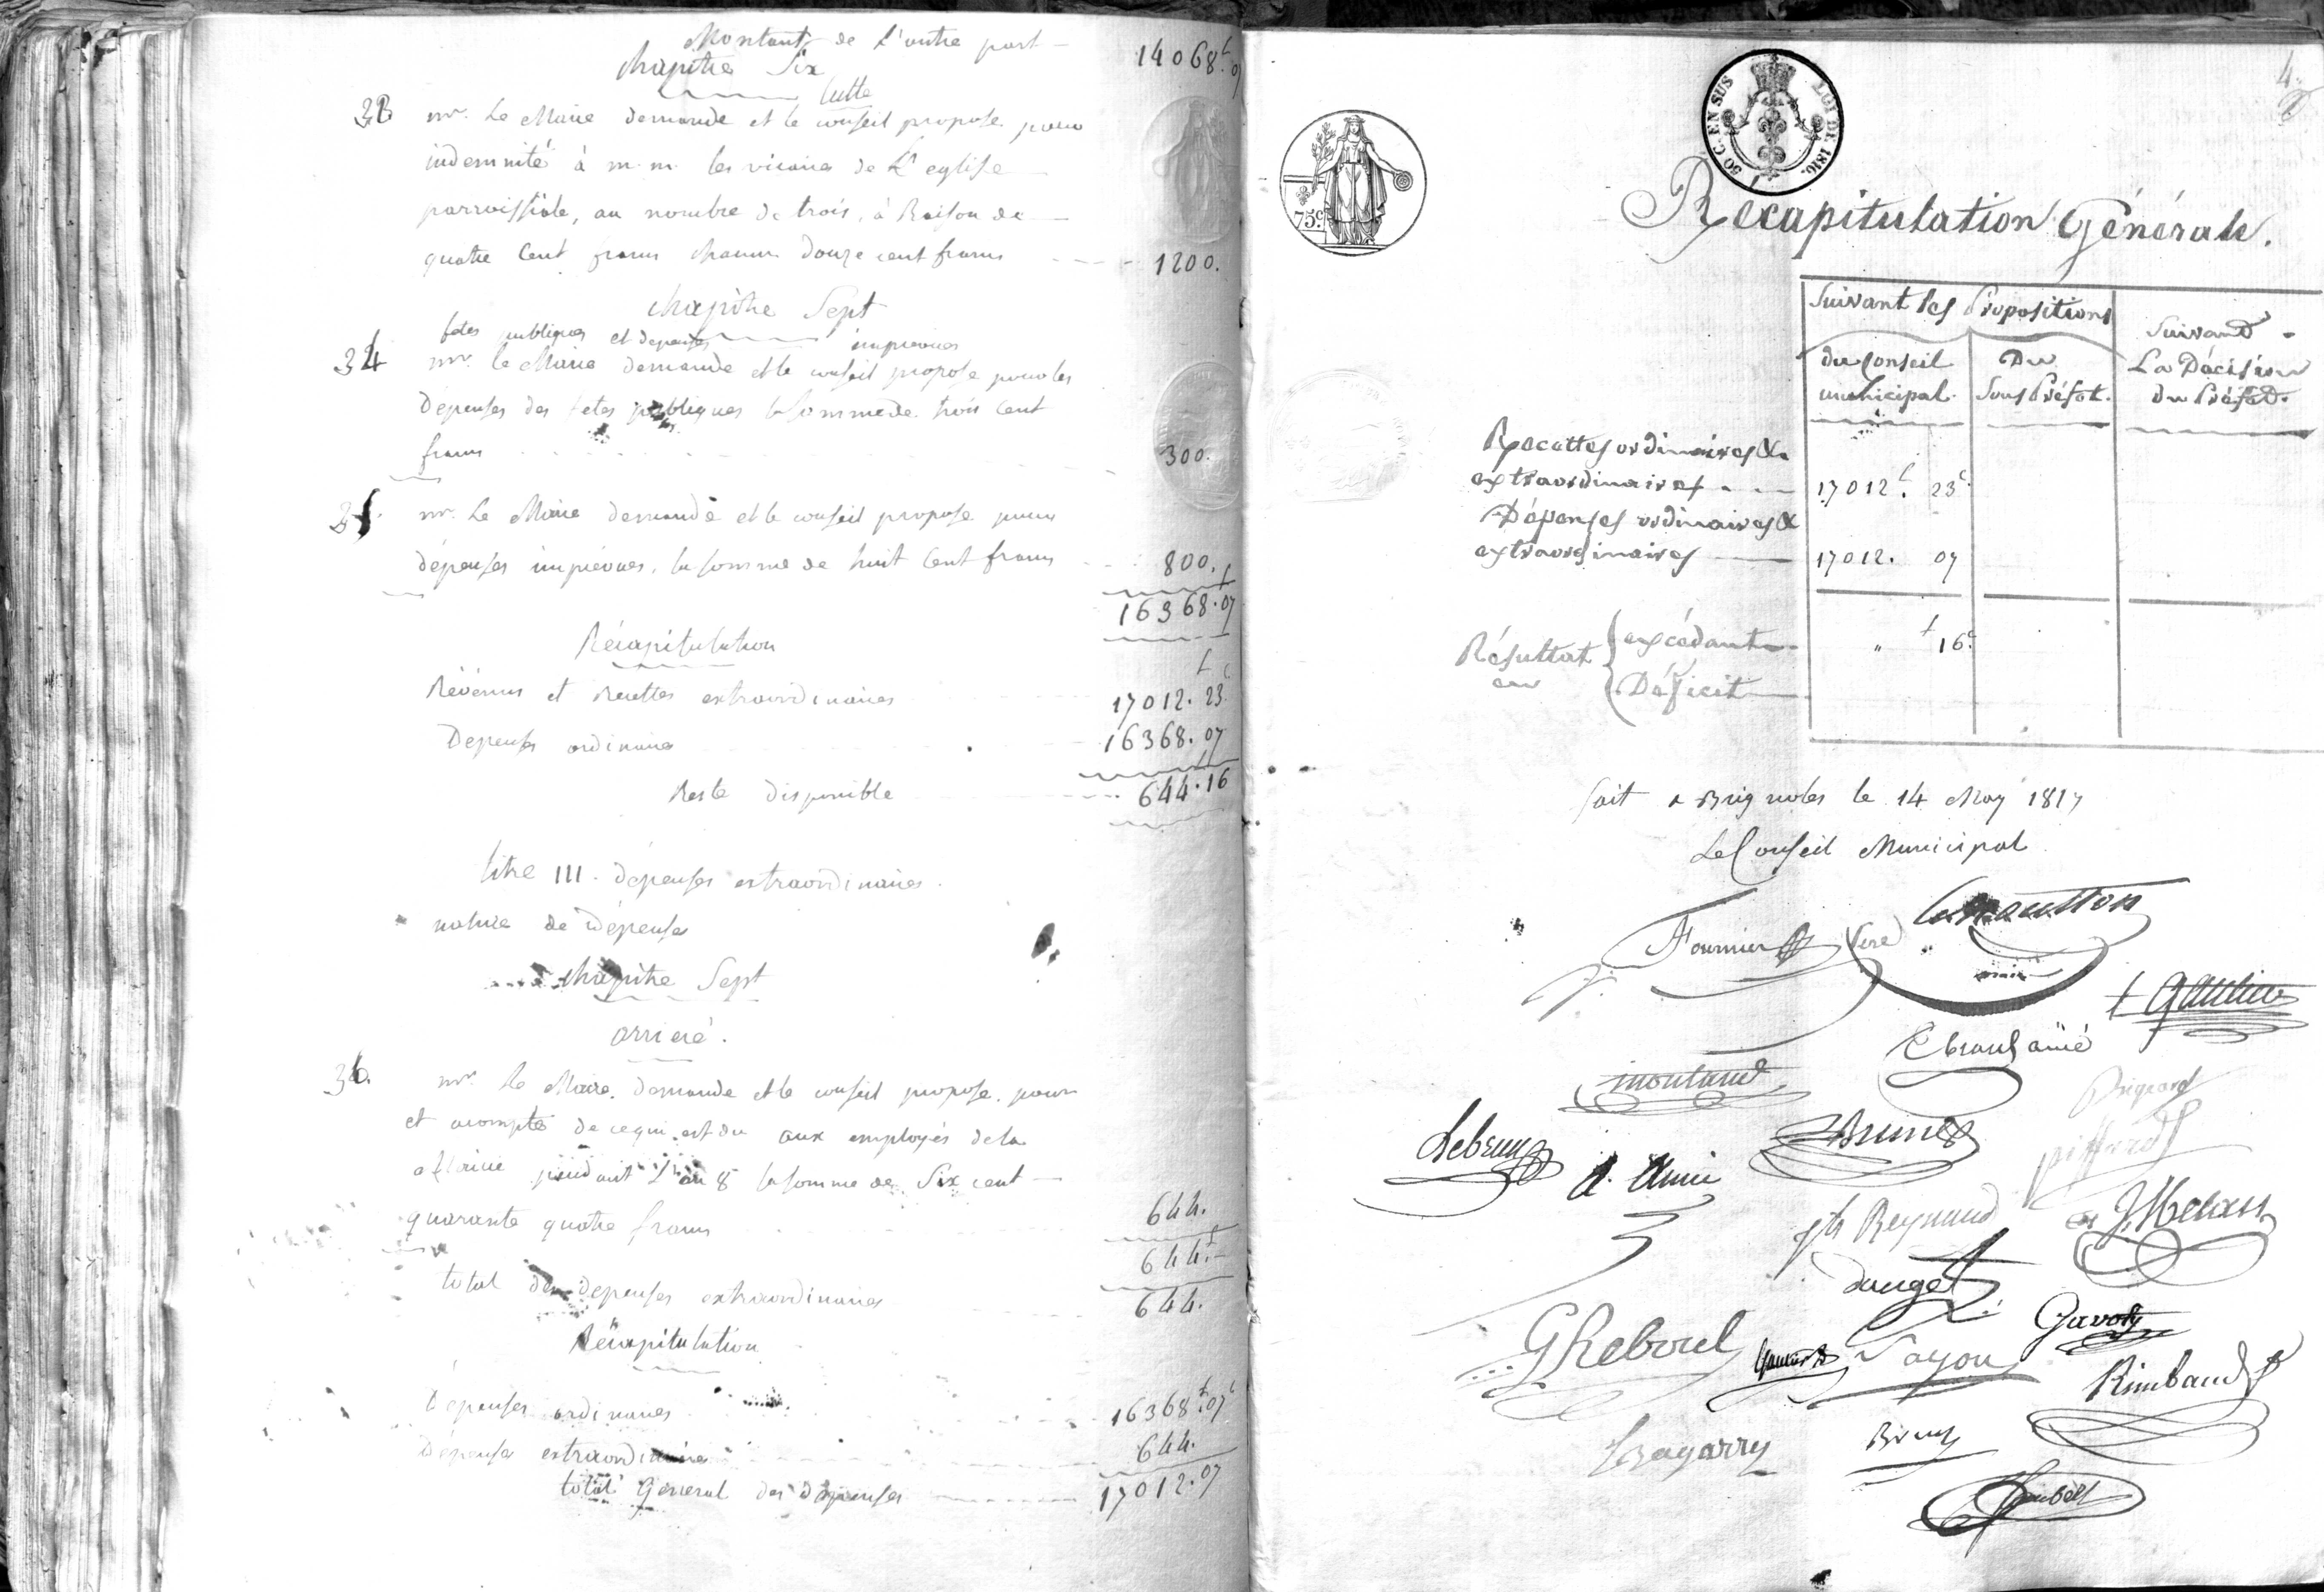 Montant de L'autre part
14068.f 07
chapitre Six
Culte
33 mr. Le Maire demande et le conseil propose pour
indemnité à m.m. les vicaires de L'eglise
parroissiale, au nombre de trois, à Raison de
quatre Cent francs chacun douze cent francs 1200.
chapitre Sept
fetes publiques et depenses imprevues
34 mr. le Maire demande et le conseil propose pour les
Depenses des fetes publiques la somme de trois Cent
francs 300.
35 mr. Le Maire demande et le conseil propose pour
dépenses imprévues, la somme de huit Cent francs 800.
16368.f 07
Récapitulation
Révenus et Recettes extraordinaires 17012.f 23c
Depenses ordinaires 16368. 07
Reste disponible 644.16
titre III. dépenses extraordinaires.
nature de dépenses
chapitre Sept
arrieré.
36. mr. Le Maire demande et le conseil propose, pour
et acompte de ce qui est du aux employés de la
Mairie pendant L'an 8 la somme de Six cent
quarante quatre francs 644.
644.f
total des depenses extraordinaires 644.
Récapitulation
Dépenses ordinaires 16368.f 07c
Dépenses extraordinaires 644.
total General des dépenses 17012.07
4.
50 C. EN SUS LOI DE 1816.
75.c
Récapitulation Générale.
Suivant les Propositions
Suivant
La Décision
du Préfet.
du Conseil
municipal.
Du
Sous Préfet.
Recettes ordinaires &
extraordinaires 17012.f 23c.
Dépenses ordinaires &
extraordinaires 17012. 07
Résultat en excédant " f 16c.
Déficit
fait a Brignoles le 14 May 1817
Le Conseil Municipal
Fournier
maire
montaud
Lebrun
Brunet
piffard
A. Amic
Jh Reynaud
dauget
G Reboul
Gavoty
Rimbaud
Bagarry
Brun
Joubert